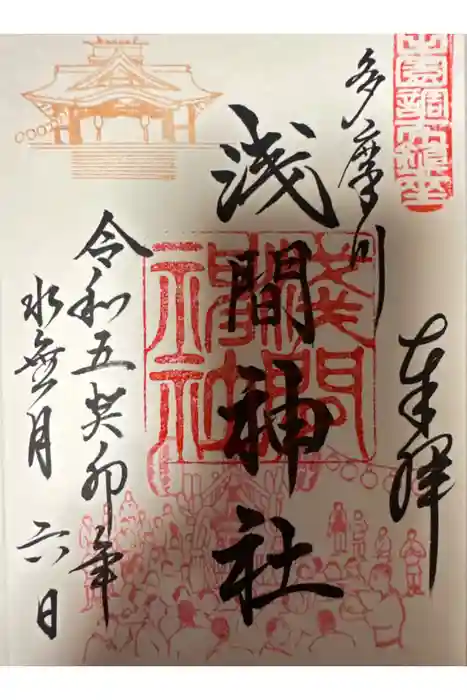 奉拝
多摩川
浅間神社
令和五癸卯年
水無月 六日
浅間神社